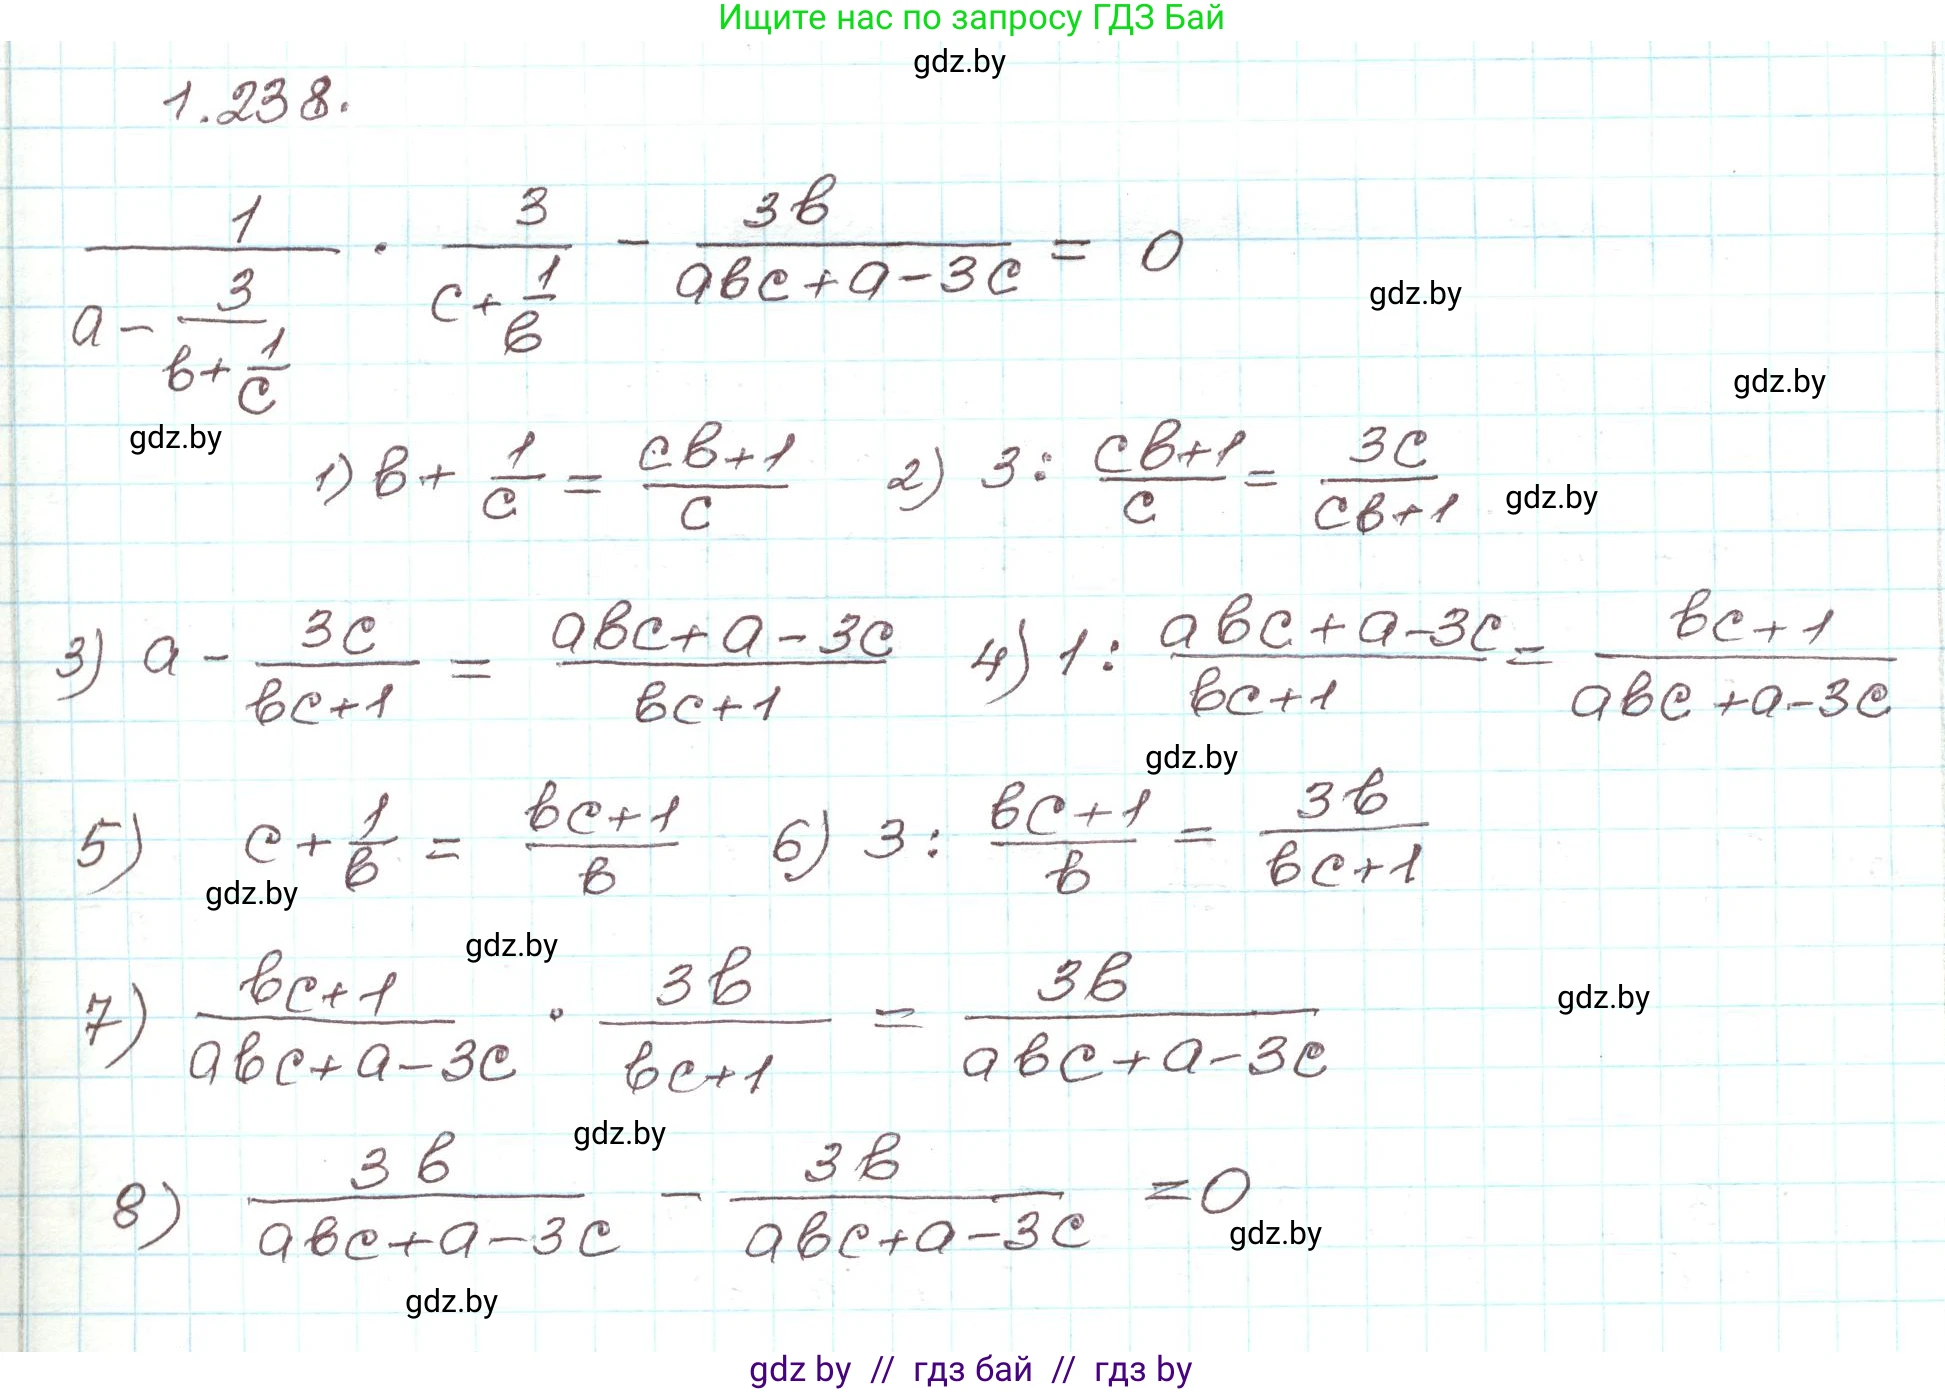 Ищите нас по запросу ГДЗ Бай
gdz.by
1.238.
1/(a - 3/(b + 1/c)) · 3/(c + 1/b) - 3b/(abc + a - 3c) = 0
gdz.by
gdz.by
gdz.by
1) b + 1/c = (cb+1)/c 2) 3 : (cb+1)/c = 3c/(cb+1) gdz.by
3) a - 3c/(bc+1) = (abc+a-3c)/(bc+1) 4) 1 : (abc+a-3c)/(bc+1) = (bc+1)/(abc+a-3c)
gdz.by
5) c + 1/b = (bc+1)/b 6) 3 : (bc+1)/b = 3b/(bc+1)
gdz.by
gdz.by
7) (bc+1)/(abc+a-3c) · 3b/(bc+1) = 3b/(abc+a-3c) gdz.by
gdz.by
8) 3b/(abc+a-3c) - 3b/(abc+a-3c) = 0
gdz.by
gdz.by
gdz by // гдз бай // гдз by